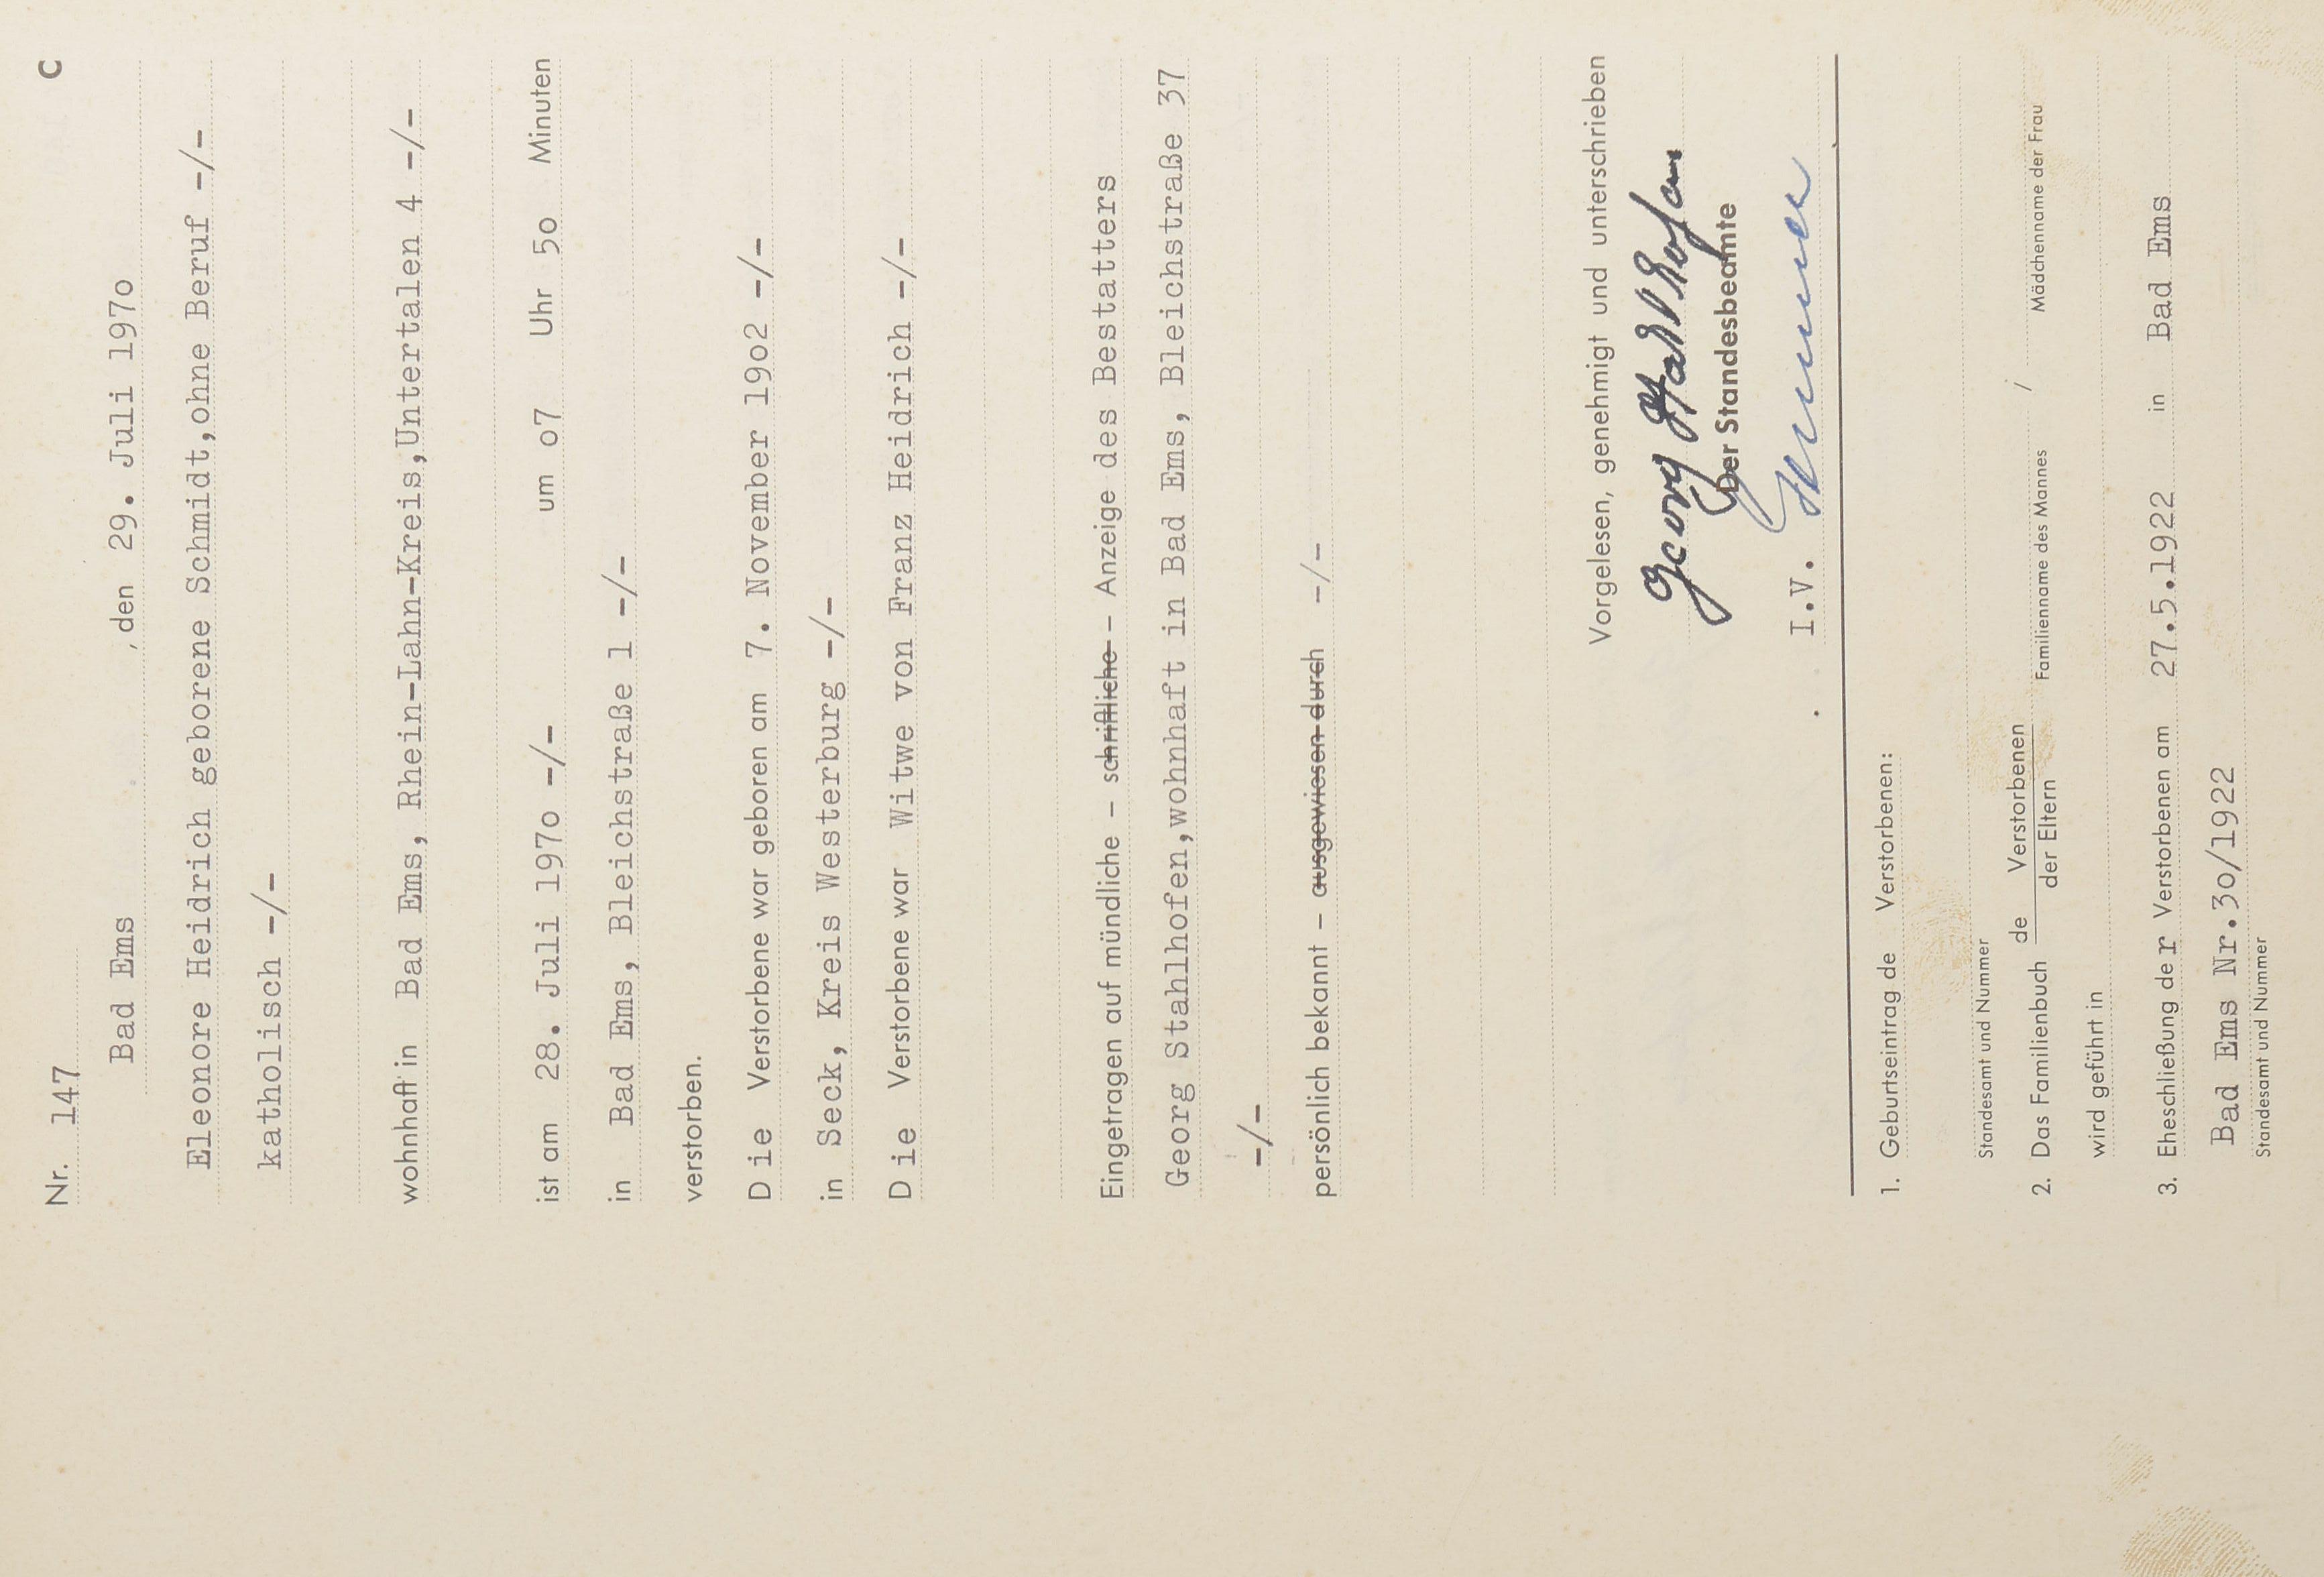 Nr. 147 C
Bad Ems , den 29. Juli 197o
Eleonore Heidrich geborene Schmidt,ohne Beruf -/-
katholisch -/-
wohnhaft in Bad Ems, Rhein-Lahn-Kreis,Untertalen 4 -/-
ist am 28. Juli 197o -/- um o7 Uhr 5o Minuten
in Bad Ems, Bleichstraße 1 -/-
verstorben.
D ie Verstorbene war geboren am 7. November 19o2 -/-
in Seck, Kreis Westerburg -/-
D ie Verstorbene war Witwe von Franz Heidrich -/-
Eingetragen auf mündliche – schriftliche – Anzeige des Bestatters
Georg Stahlhofen,wohnhaft in Bad Ems, Bleichstraße 37
-/-
persönlich bekannt – ausgewiesen durch -/-
Vorgelesen, genehmigt und unterschrieben
Georg Stahlhofen
Der Standesbeamte
I.V.
1. Geburtseintrag de Verstorbenen:
Standesamt und Nummer
2. Das Familienbuch de Verstorbenen
der Eltern Familienname des Mannes / Mädchenname der Frau
wird geführt in
3. Eheschließung de r Verstorbenen am 27.5.1922 in Bad Ems
Bad Ems Nr.3o/1922
Standesamt und Nummer